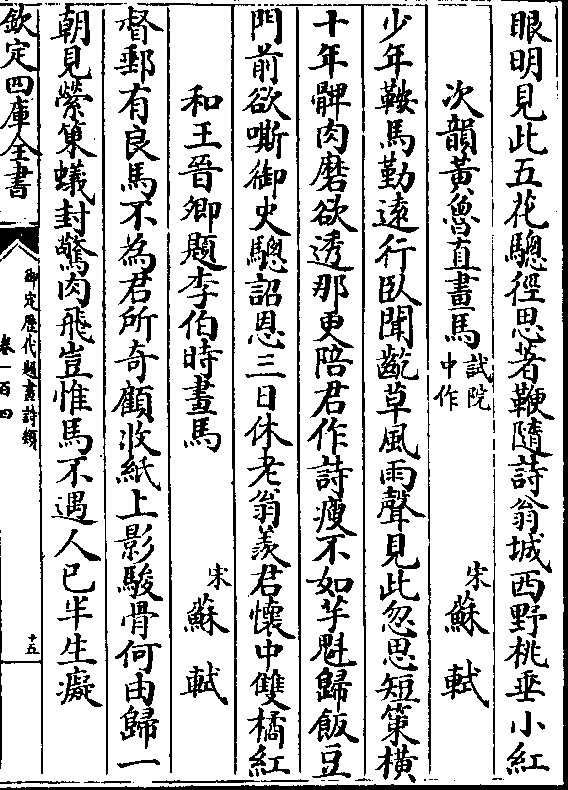 眼明見此五花驄徑思著鞭隨詩翁城西野桃垂小紅
次韻黃魯直畫馬試院中作 宋蘇軾
少年鞍馬勤遠行臥聞齕草風雨聲見此忽思短策橫
十年髀肉磨欲透那更陪君作詩瘦不如芋魁歸飯豆
門前欲嘶御史驄詔恩三日休老翁羨君懷中雙橘紅
和王晉卿題李伯時畫馬 宋蘇軾
督郵有良馬不為君所奇顧收紙上影駿骨何由歸一
朝見縈策蟻封驚肉飛豈惟馬不遇人已半生癡
欽定四庫全書
御定歷代題畫詩類
卷一百四
十五